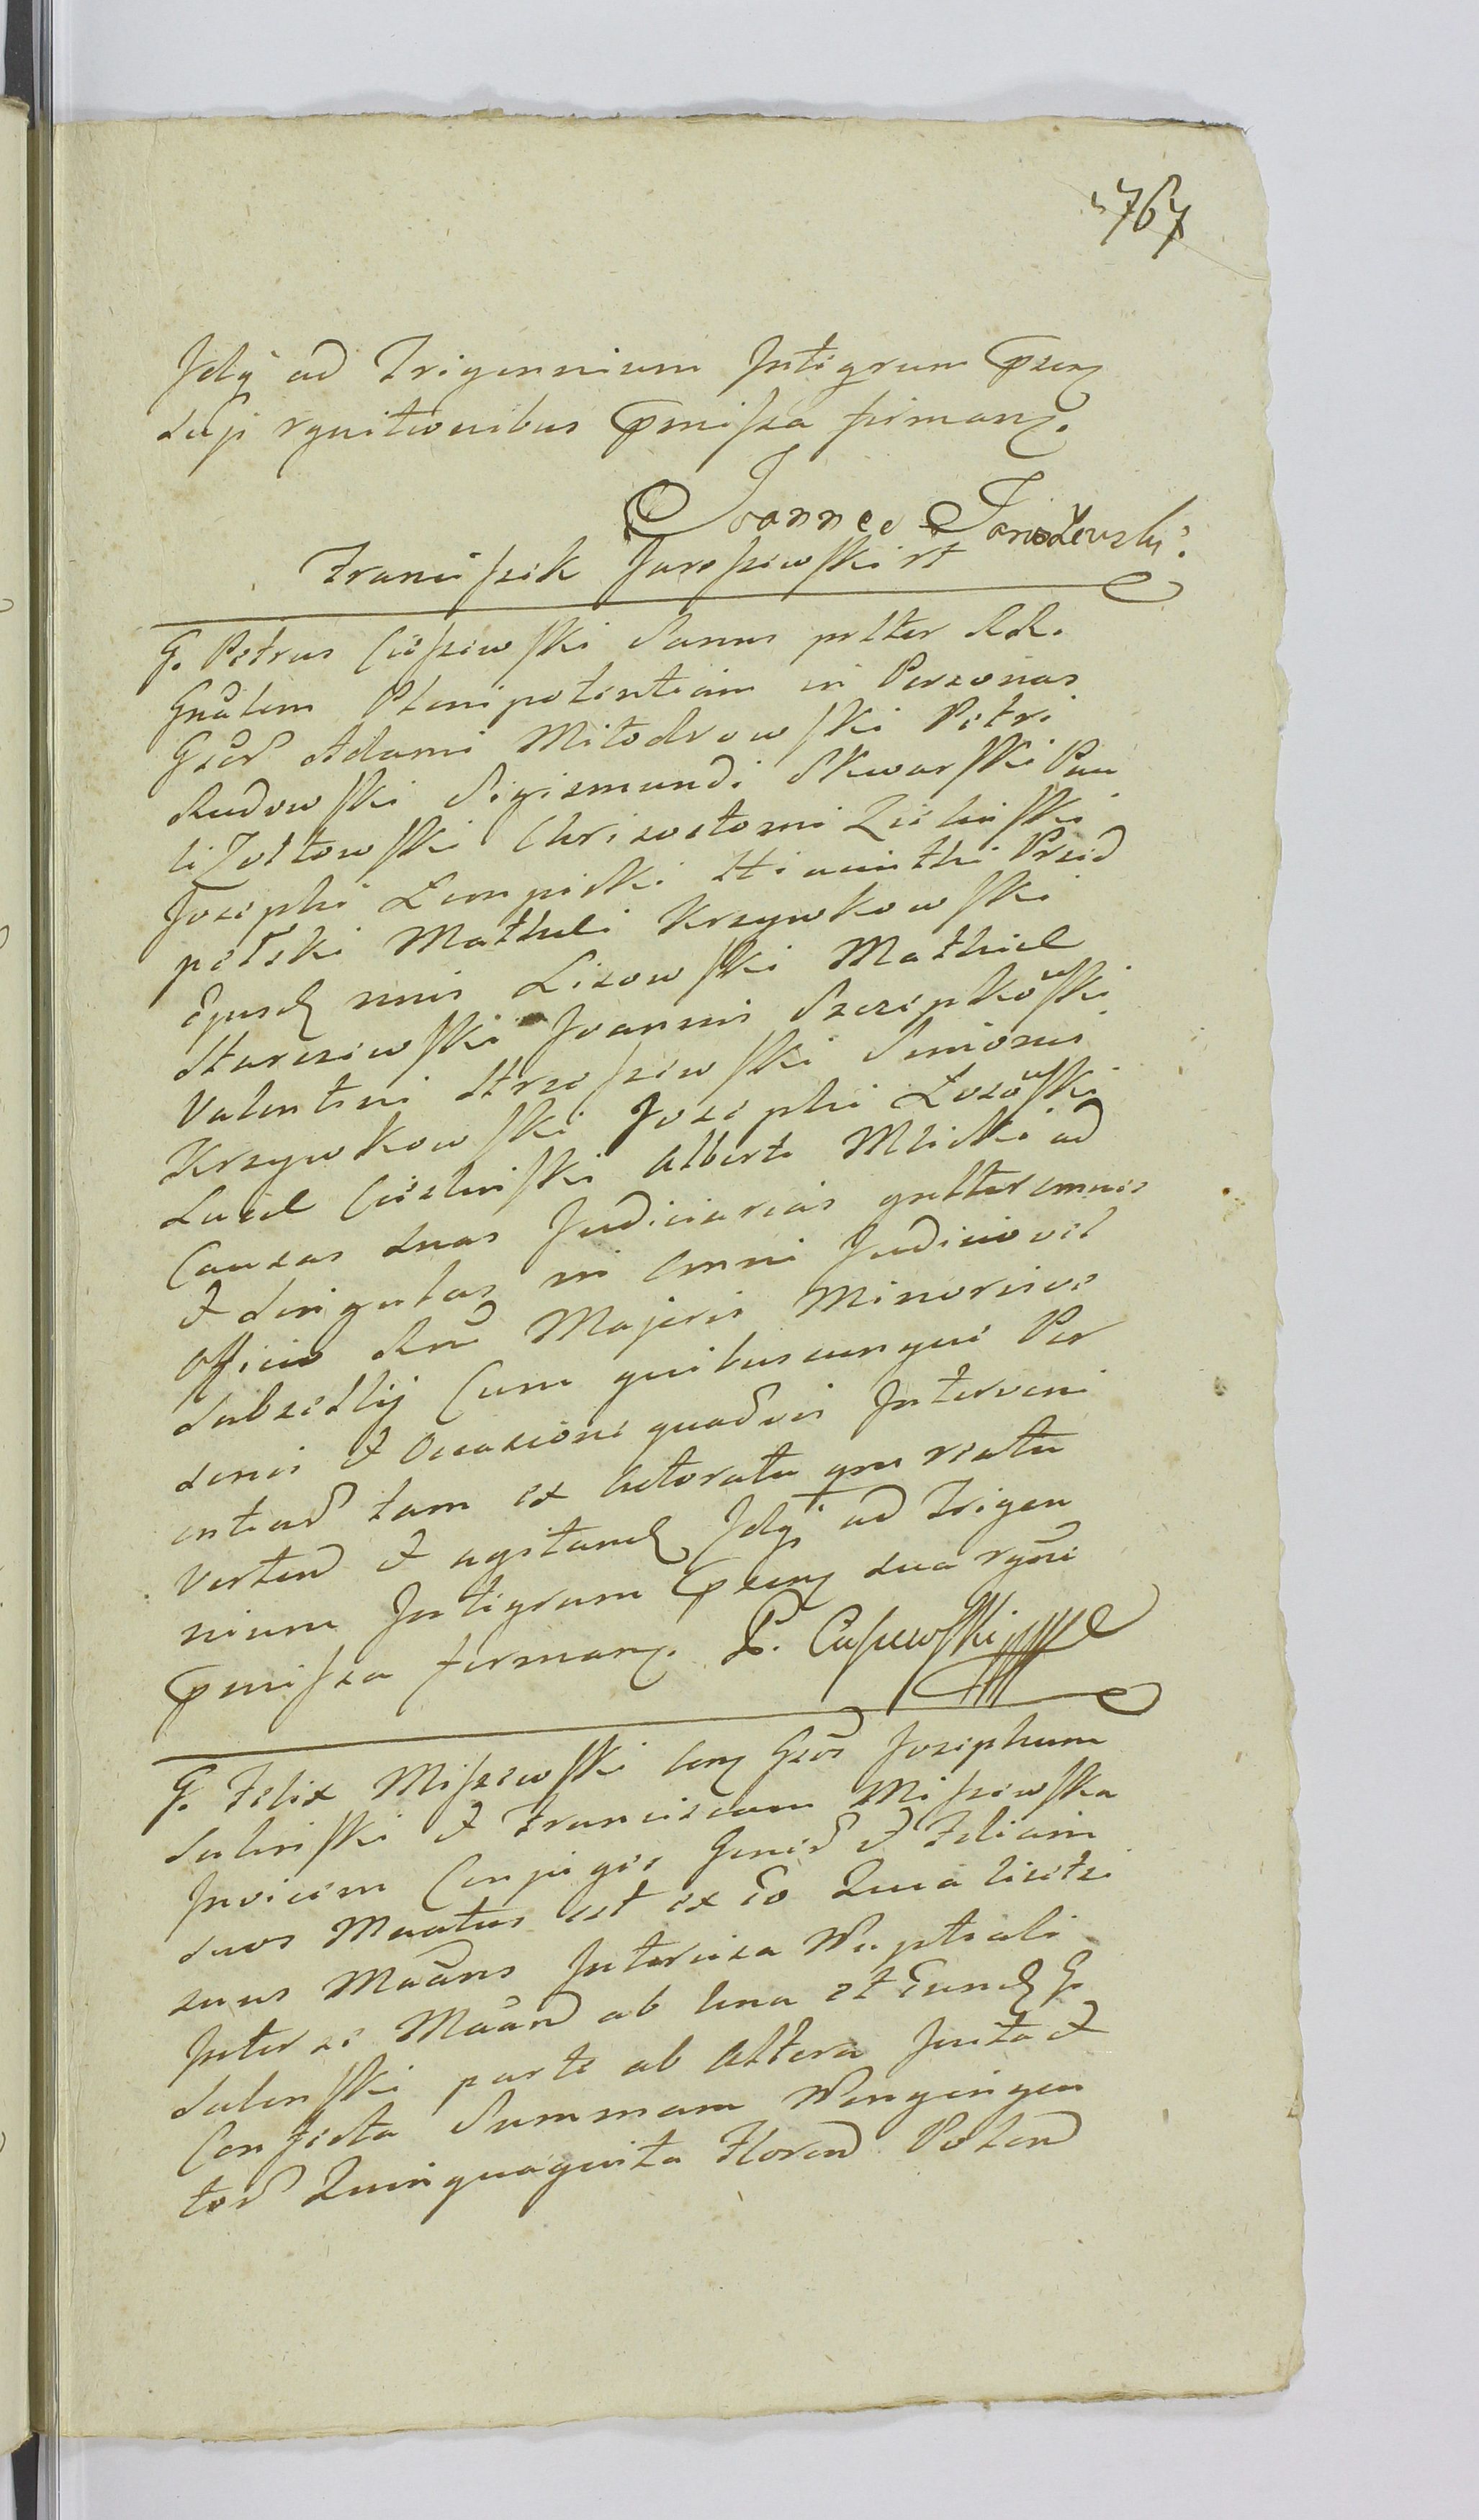 767
Jdq ad Trigennium Integrum Pnten
Suis rgnitionibus Pmissa firmans.
Joannes Jaroszewski
Franciszek Jaroszewski rt
G. Petrus Cieszewski Sanus prltter RR.
Gnalem Plenipotentiam in Personas
Gsor Adami Miłodrowski Petri
Rudowski Sigismundi Skwarski Pau
li Zołtowski Chrisostomi Zieliński
Josephi Lempicki Hiacinthi Prze
pełski Mathei Krzywkowski
Ejusd nnis Lisowski Mathie
Starczewski Joannis Szczepkowski
Valentini Strzeszewski Simonis
Krzywkowski Josephi Łozowski
Lucae Cieśliński Alberti Mlicki ad
Causas suas Judiciarias gnltter omnes
et singulas in omni Judicio vel
officio Rni Majoris Minorisve
Subsellij Cum quibuscunque Per
sonis et Occasione quavis Interveni
entiad tam ex Actoratu qm reatu
verten et agitand Jdq ad Trigen
nium Integrum Pnten sua rgni
Pmissa firmans. P. Cieszewski mp
G. Felix Miszewski Gsos Josephum
Suliński et Franciscam Miszewska
Invicem Conjuges Generd et Filiam
suos Mnatus est ex eo Quia licet
suus Mnans Intercisa Nuptiali
Inter se Mnand ab una et Eund G.
Suleński parte ab Altera Inita et
Confecta Summam Nongingen
tor Quinquaginta Floren Polon